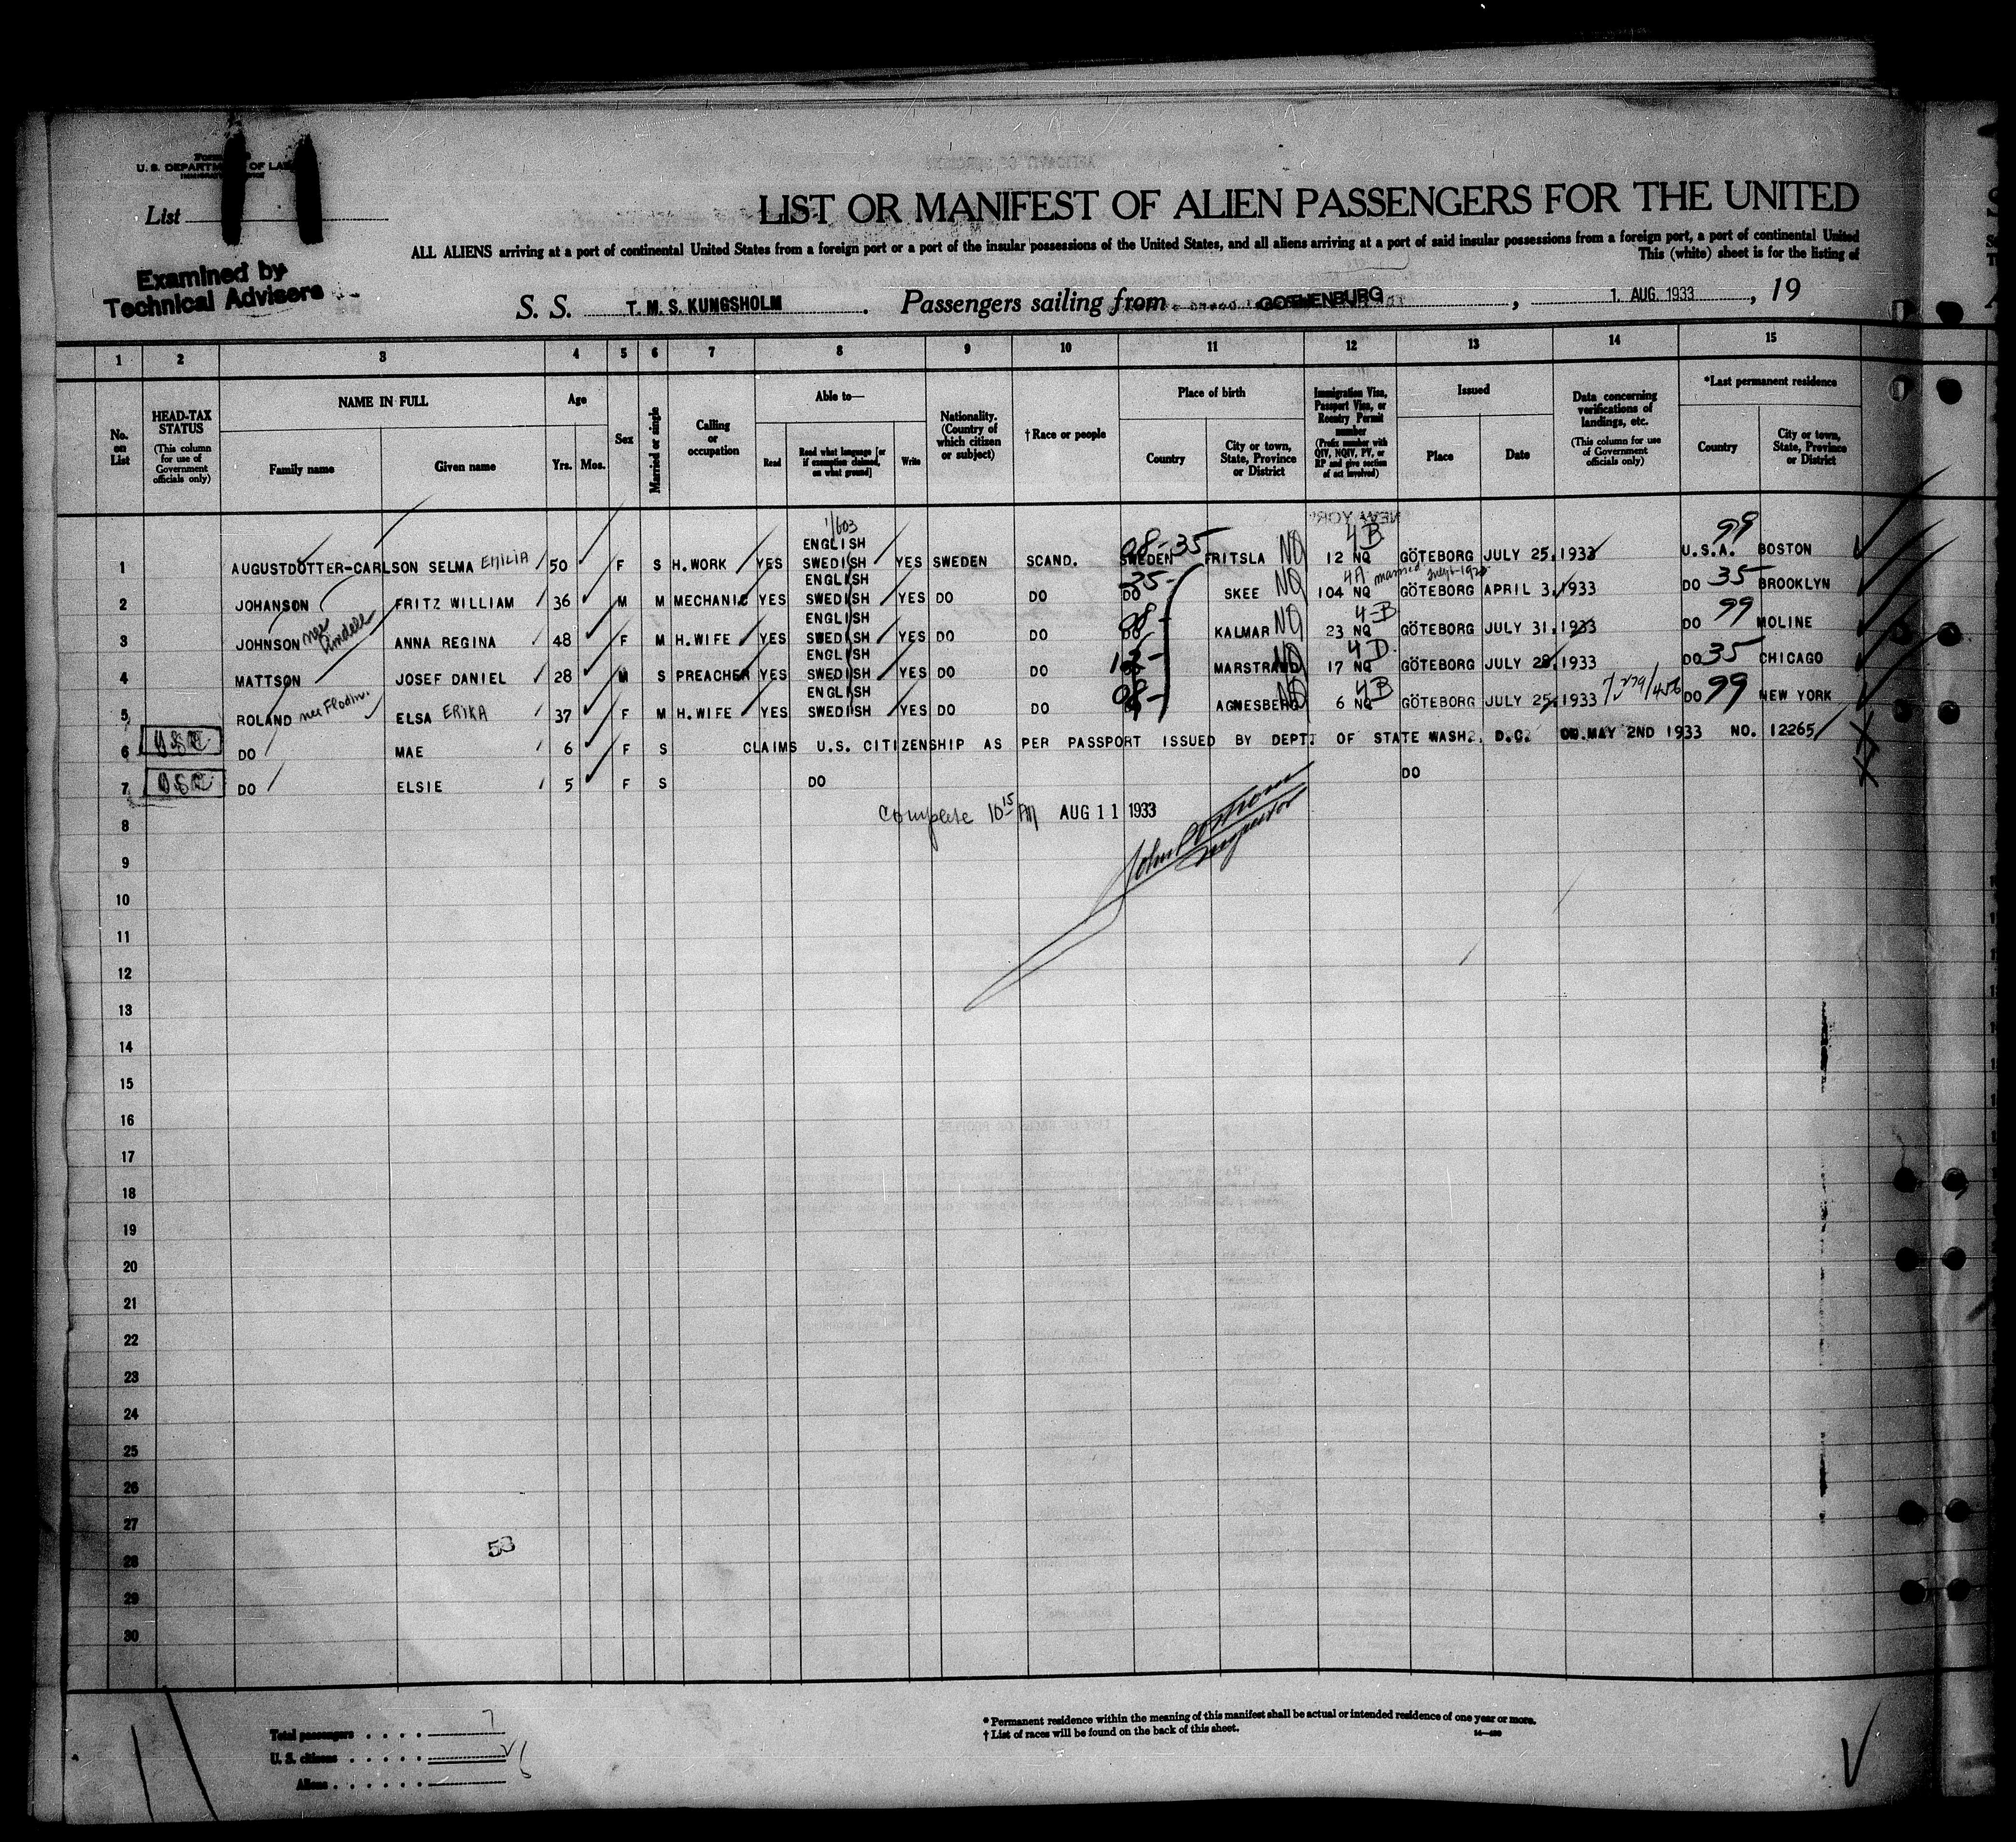 U. S. DEPARTMENT OF LABOR
List 11
LIST OR MANIFEST OF ALIEN PASSENGERS FOR THE UNITED
ALL ALIENS arriving at a port of continental United States from a foreign port or a port of the insular possessions of the United States, and all aliens arriving at a port of said insular possessions from a foreign port, a port of continental United
This (white) sheet is for the listing of
Examined by
Technical Advisers
S. S. T. M. S. KUNGSHOLM. Passengers sailing from GOTHENBURG, 1. AUG. 1933, 19
1 2 3 4 5 6 7 8 9 10 11 12 13 14 15
No. on List
HEAD-TAX STATUS (This column for use of Government officials only)
NAME IN FULL
Family name
Given name
Age
Yrs. Mos.
Sex
Married or single
Calling or occupation
Able to—
Read
Read what language [or if exemption claimed, on what ground]
Write
Nationality. (Country of which citizen or subject)
† Race or people
Place of birth
Country
City or town, State, Province or District
Immigration Visa, Passport Visa, or Reentry Permit number (Prefix number with QIV, NQIV, PV, or RP and give section of act involved)
Issued
Place
Date
Data concerning verifications of landings, etc. (This column for use of Government officials only)
*Last permanent residence
Country
City or town, State, Province or District
NEW YORK
1/603
1 AUGUSTDOTTER-CARLSON SELMA EMILIA 50 F S H.WORK YES ENGLISH SWEDISH YES SWEDEN SCAND. 08-35 SWEDEN FRITSLA NQ 4B 12 NQ GÖTEBORG JULY 25.1933 99 U.S.A. BOSTON
2 JOHANSON FRITZ WILLIAM 36 M M MECHANIC YES ENGLISH SWEDISH YES DO DO 35- DO SKEE NQ 4A married 104 NQ GÖTEBORG APRIL 3.1933 DO 35 BROOKLYN
3 JOHNSON nee Lindell ANNA REGINA 48 F M H.WIFE YES ENGLISH SWEDISH YES DO DO 08- DO KALMAR NQ 4-B 23 NQ GÖTEBORG JULY 31.1933 DO 99 MOLINE
4 MATTSON JOSEF DANIEL 28 M S PREACHER YES ENGLISH SWEDISH YES DO DO MARSTRAND NQ 4D 17 NQ GÖTEBORG JULY 28.1933 DO 35 CHICAGO
5 ROLAND nee Flodin. ELSA ERIKA 37 F M H.WIFE YES ENGLISH SWEDISH YES DO DO 08- AGNESBERG NQ 4B 6 NQ GÖTEBORG JULY 25.1933 DO 99 NEW YORK
6 USC DO MAE 6 F S CLAIMS U.S. CITIZENSHIP AS PER PASSPORT ISSUED BY DEPT: OF STATE WASH. D.C. ON MAY 2ND 1933 NO. 12265
7 USC DO ELSIE 5 F S DO DO
8
Complete 10 15 AM AUG 11 1933
Inspector
9
10
11
12
13
14
15
16
17
18
19
20
21
22
23
24
25
26
27
53
28
29
30
Total passengers . . . . 7
U. S. citizens . . . . .
Aliens . . . . . .
* Permanent residence within the meaning of this manifest shall be actual or intended residence of one year or more.
† List of races will be found on the back of this sheet.